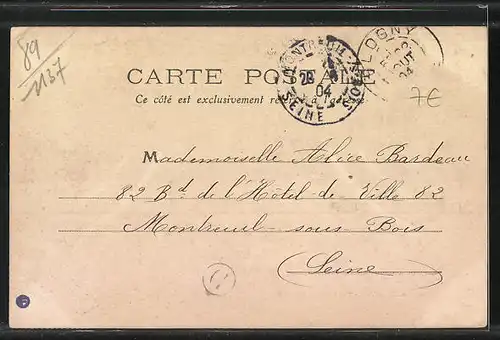 89
1137
MONTREUIL-S-BOIS
28 04
SEINE
LOGNY
OUT
04
CARTE POSTALE
Ce côté est exclusivement réservé à l'adresse
7€
Mademoiselle Alice Bardeau
82 Bd de l'Hôtel de Ville 82
Montreuil-sous-Bois
(Seine)